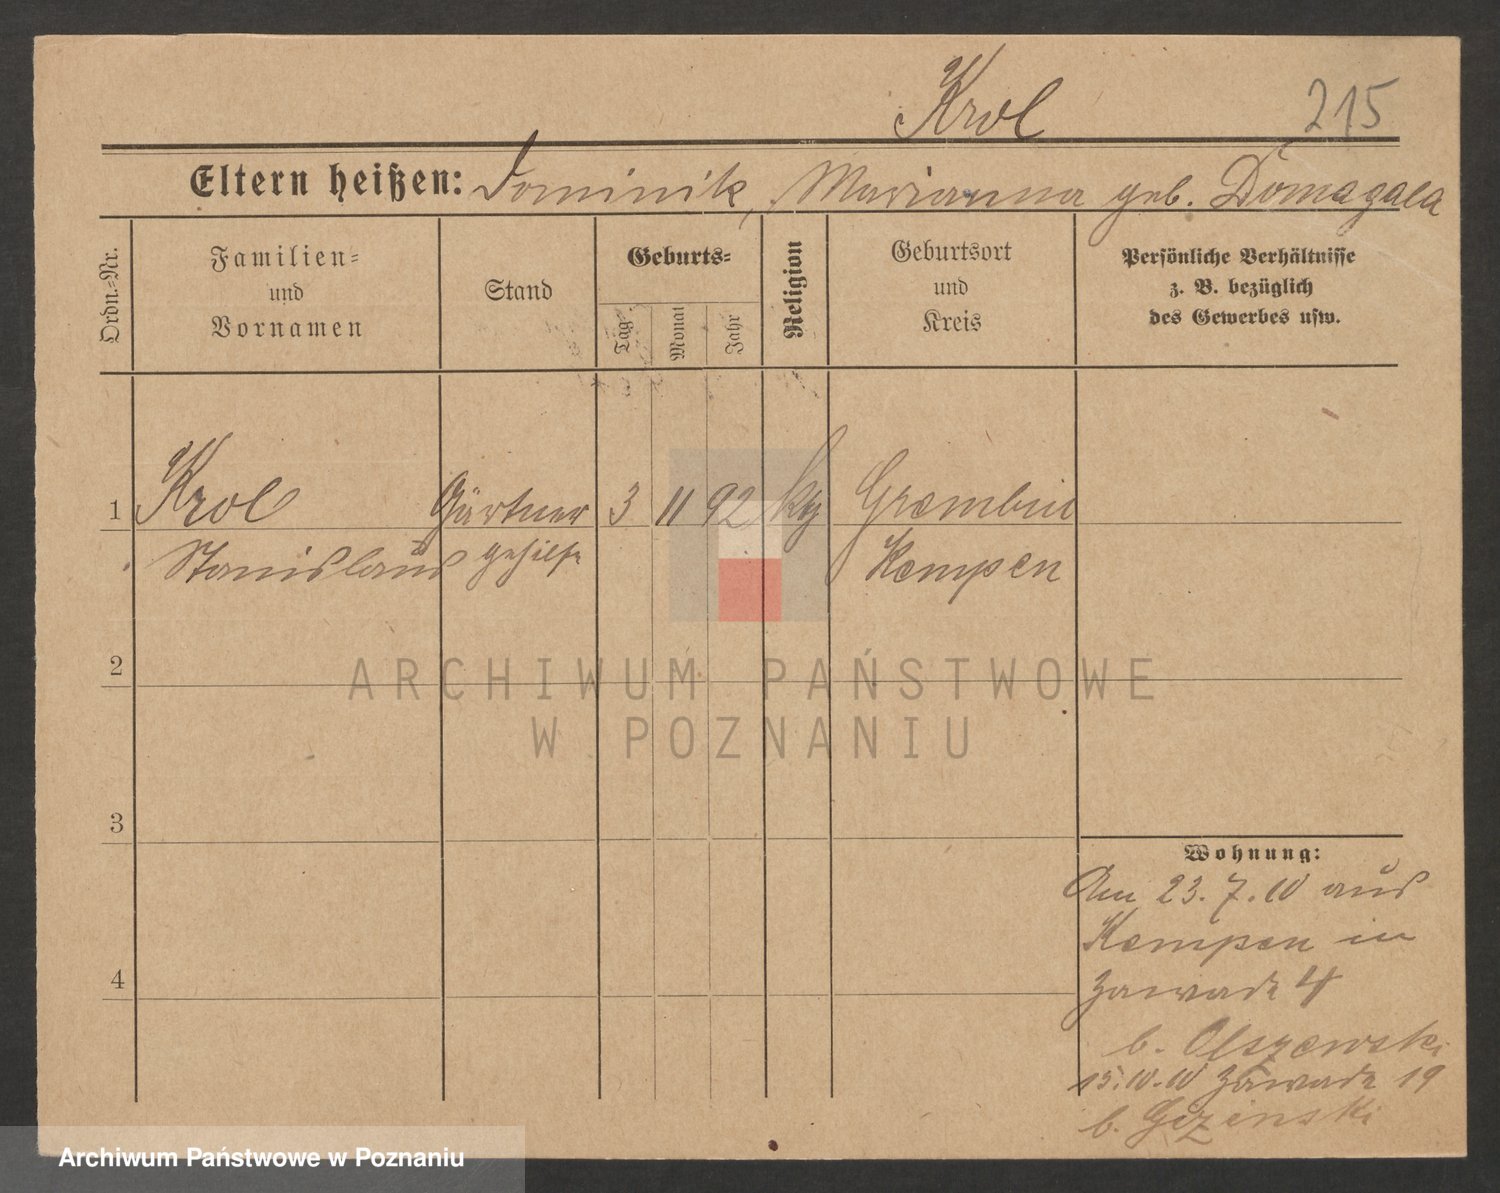 Krol
215
Eltern heißen: Dominik, Marianna geb. Domagala
Ordn.-Nr.
Familien-
und
Vornamen
Stand
Geburts-
Tag
Monat
Jahr
Religion
Geburtsort
und
Kreis
Persönliche Verhältnisse
z. B. bezüglich
des Gewerbes usw.
1 Krol Gärtner 3 11 92
Stanislaus gehilfe Kempen
2
3
4
Wohnung:
Am 23. 7. 10 aus
Kempen in
Zawade 4
b. Olszewski
15.10.10 Zawade 19
b.
ARCHIWUM PAŃSTWOWE
W POZNANIU
Archiwum Państwowe w Poznaniu